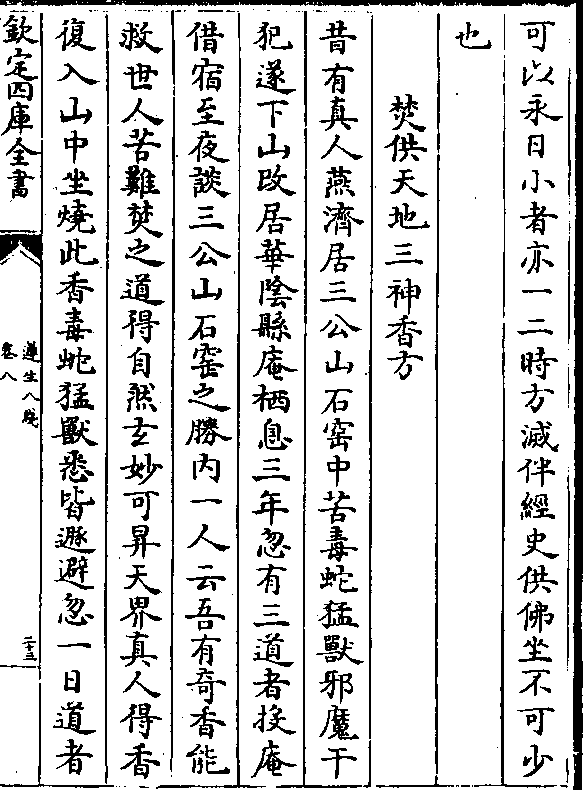 可以永日小者亦一二時方滅伴經史供佛坐不可少
也
焚供天地三神香方
昔有真人燕濟居三公山石窑中苦毒蛇猛獸邪魔干
犯遂下山改居華陰縣庵栖息三年忽有三道者投庵
借宿至夜談三公山石窑之勝内一人云吾有奇香能
救世人苦難焚之道得自然玄妙可昇天界真人得香
復入山中坐燒此香毒蛇猛獸悉皆遯避忽一日道者
欽定四庫全書
遵生八牋
卷八
二十三